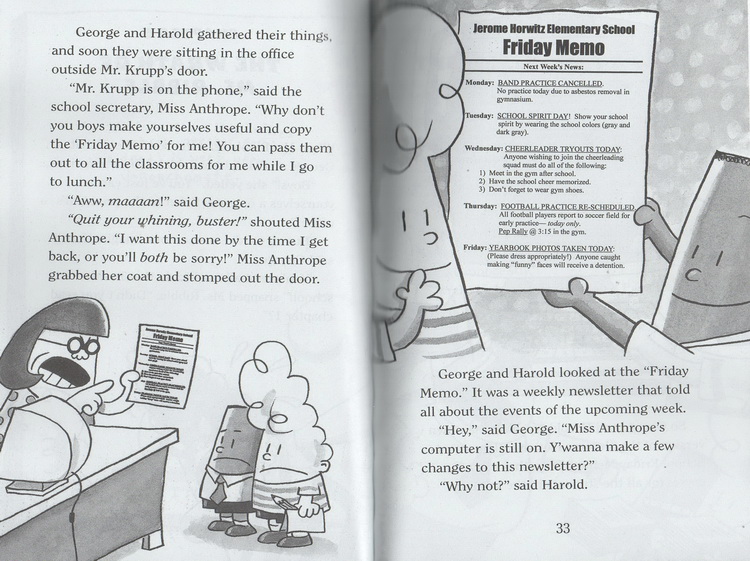 George and Harold gathered their things,
and soon they were sitting in the office
outside Mr. Krupp's door.
"Mr. Krupp is on the phone," said the
school secretary, Miss Anthrope. "Why don't
you boys make yourselves useful and copy
the 'Friday Memo' for me! You can pass them
out to all the classrooms for me while I go
to lunch."
"Aww, maaaan!" said George.
"Quit your whining, buster!" shouted Miss
Anthrope. "I want this done by the time I get
back, or you'll both be sorry!" Miss Anthrope
grabbed her coat and stomped out the door.
Friday Memo
Jerome Horwitz Elementary School
Friday Memo
Next Week's News:
Monday: BAND PRACTICE CANCELLED.
No practice today due to asbestos removal in
gymnasium.
Tuesday: SCHOOL SPIRIT DAY! Show your school
spirit by wearing the school colors (gray and
dark gray).
Wednesday: CHEERLEADER TRYOUTS TODAY:
Anyone wishing to join the cheerleading
squad must do all of the following:
1) Meet in the gym after school.
2) Have the school cheer memorized.
3) Don't forget to wear gym shoes.
Thursday: FOOTBALL PRACTICE RE-SCHEDULED.
All football players report to soccer field for
early practice— today only.
Pep Rally @ 3:15 in the gym.
Friday: YEARBOOK PHOTOS TAKEN TODAY:
(Please dress appropriately!) Anyone caught
making "funny" faces will receive a detention.
George and Harold looked at the "Friday
Memo." It was a weekly newsletter that told
all about the events of the upcoming week.
"Hey," said George. "Miss Anthrope's
computer is still on. Y'wanna make a few
changes to this newsletter?"
"Why not?" said Harold.
33